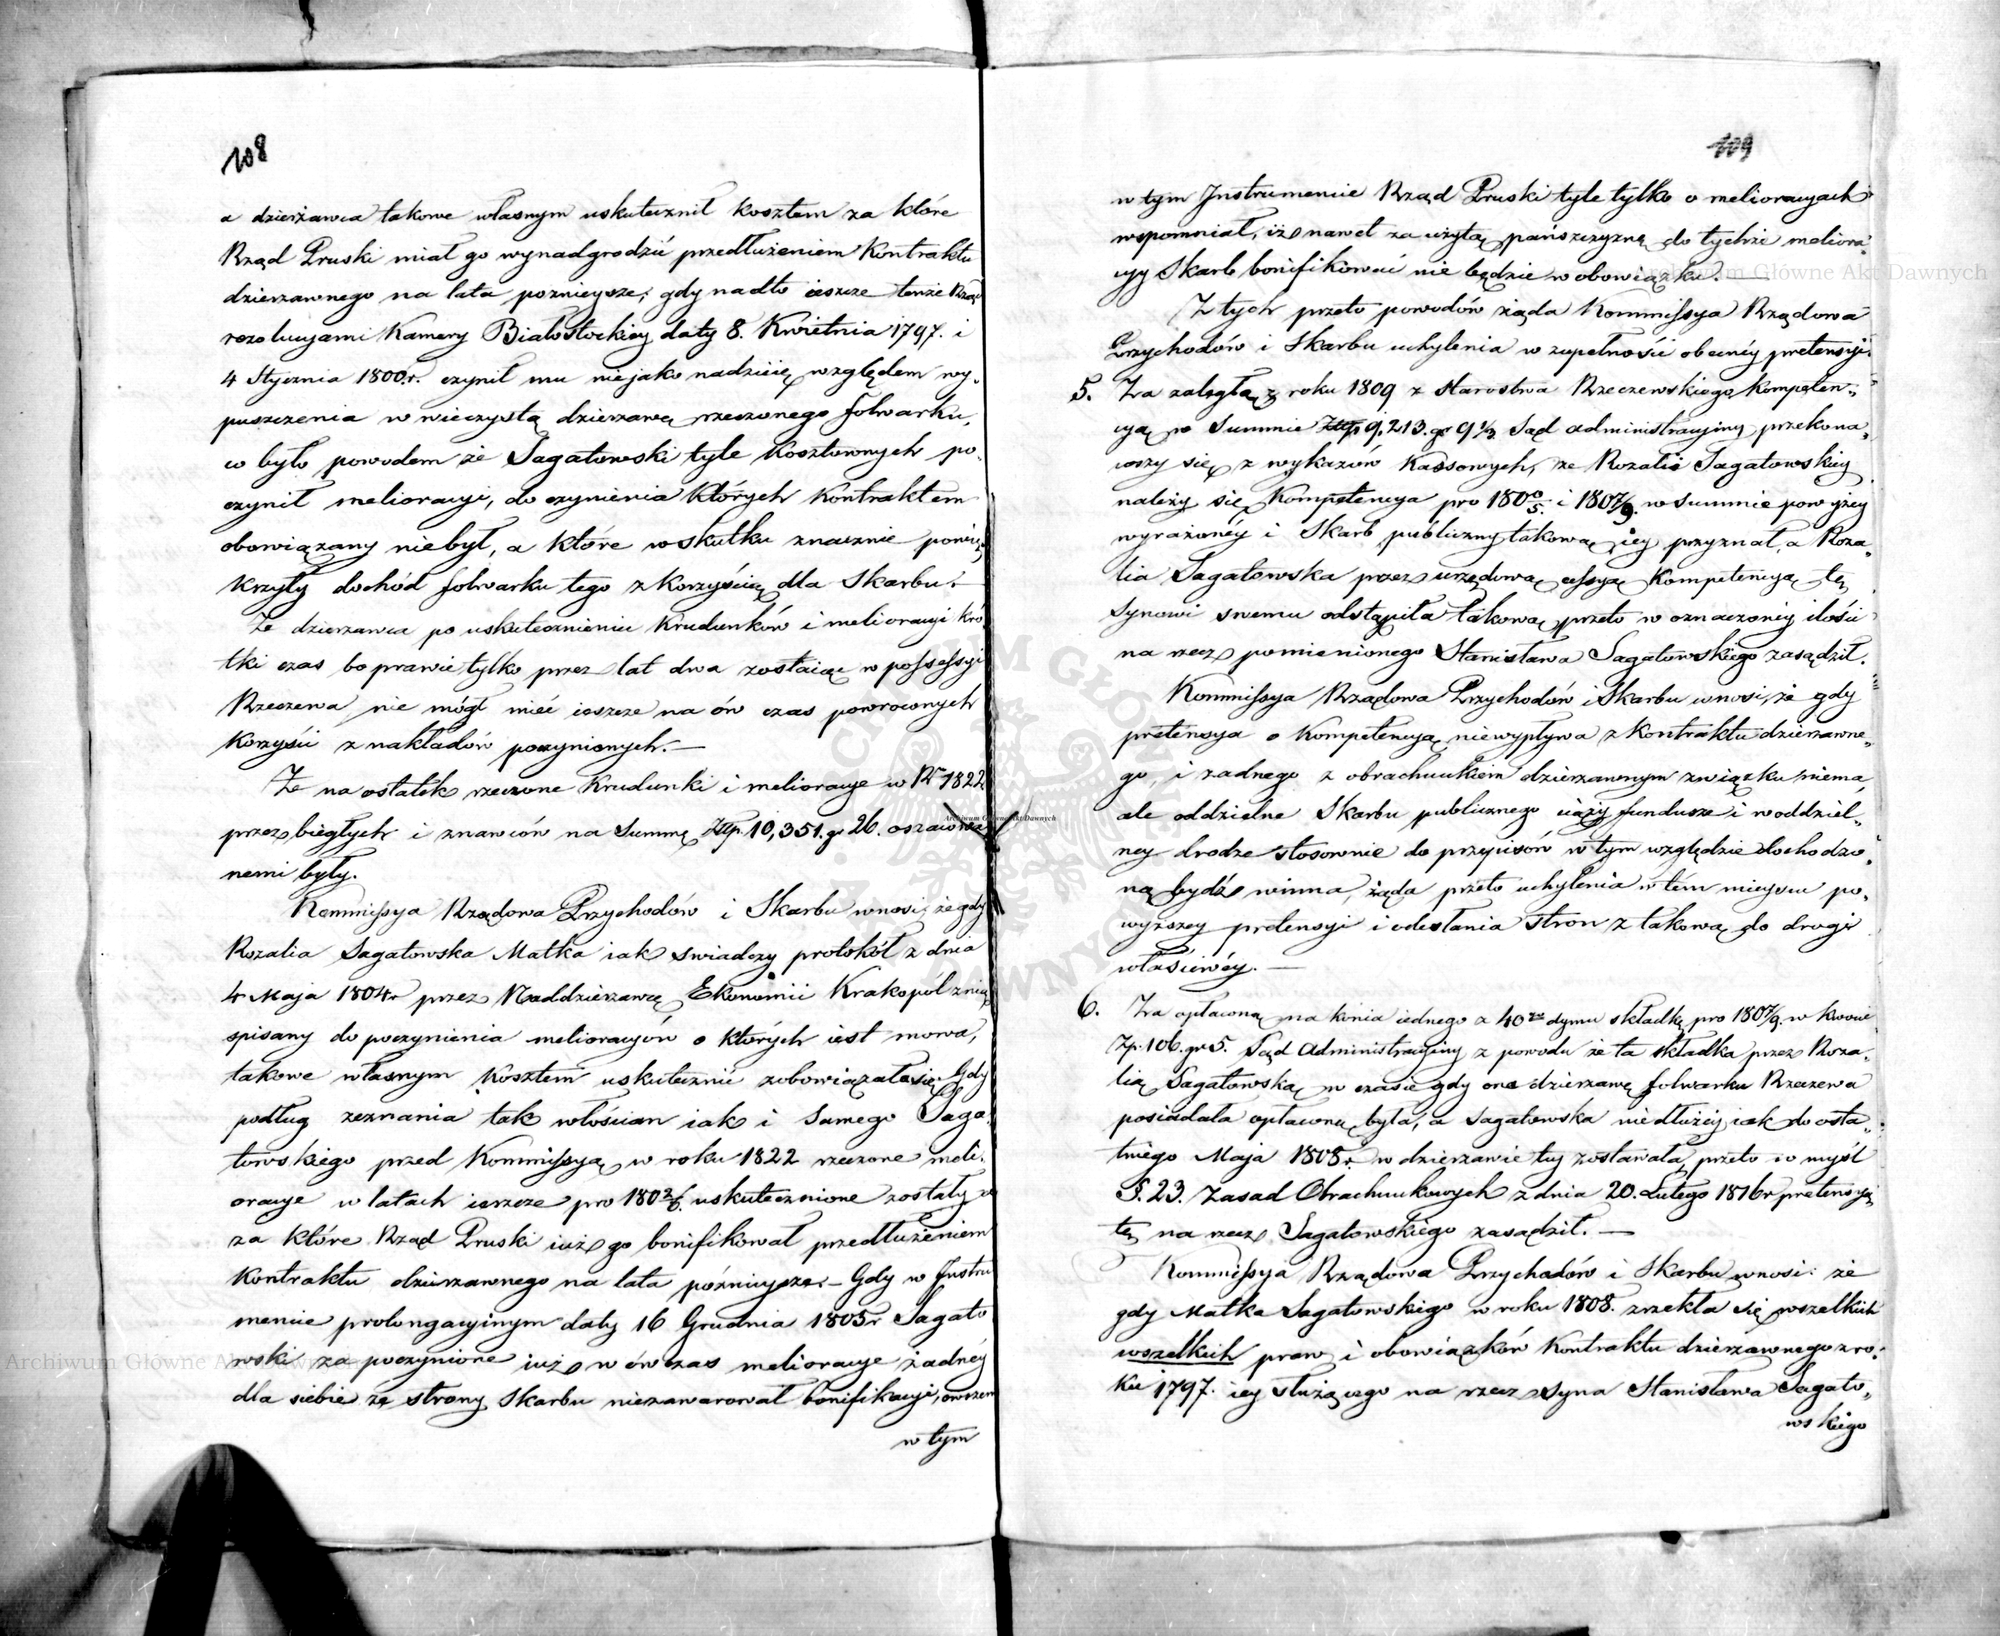 108
a dzierżawca takowe własnym uskutecznił kosztem za które
Rząd Pruski miał go wynadgrodzić przedłużeniem Kontraktu
dzierżawnego na lata poznieysze; gdy nadto ieszcze tenże Rząd
rezolucyami Kamery Białostockiey daty 8. Kwietnia 1797. i
4 Stycznia 1800.r. czynił mu niejako nadzieię względem wy-
puszczenia w wieczystą dzierżawę rzeczonego folwarku,
co było powodem że Sagatowski tyle kosztownych po-
czynił melioracyi, do czynienia których kontraktem
obowiązany niebył, a które w skutku znacznie powię-
krzyły dochód folwarku tego z korzyścią dla Skarbu.—
Że dzierżawca po uskutecznieniu Krudunków i melioracyi kró-
tki czas bo prawie tylko przez lat dwa zostaiąc w possessyi
Rzeczewa nie mógł mieć ieszcze na ów czas powroconych
korzyści z nakładów poczynionych.—
Że na ostatek rzeczone Krudunki i melioracye w Rr 1822
przez biegłych i znawców na Summę Złp. 10,351. gr 26. oszacowa-
nemi były.
Kommissya Rządowa Przychodów i Skarbu wnosi; że gdy
Rozalia Sagatowska Matka iak swiadczy protokół z dnia
4 Maja 1804r przez Naddzierżawcę Ekonomii Krakopol z nią
spisany do poczynienia melioracyów o których iest mowa,
takowe własnym kosztem uskutecznić zobowiązała się. Gdy
podług zeznania tak włościan iak i Samego Saga-
towskiego przed Kommissyą w roku 1822 rzeczone meli-
oracye w latach ieszcze pro 1802/6. uskutecznione zostały
za które Rząd Pruski iuż go bonifikował przedłużeniem
Kontraktu dzierżawnego na lata późnieysze.— Gdy w Instru
mencie prolongacyinym daty 16 Grudnia 1805r Sagato
wski za poczynione iuż w ówczas melioracye żadnéy
dla siebie ze strony Skarbu niezawarował bonifikacyi, owszem
w tym
109
w tym Instrumencie Rząd Pruski tyle tylko o melioracyach
wspomniał, iż nawet za użytą pańszczyznę do tychże meliora-
cyy Skarb bonifikować nie będzie w obowiązku.—
Z tych przeto powodów żąda Kommissya Rządowa
Przychodów i Skarbu uchylenia w zupełności obecnéy pretensyi.
5. Za zaległą z roku 1809 z Starostwa Rzeczewskiego Kompeten-
cyą w Summie Złp. 9,213. gr 9 1/3. Sąd administracyiny przekona-
wszy się z wykazów Kassowych, że Rozalii Sagatowskiey
należy się Kompetencya pro 180 6/5. i 1807/9. w summie powyżey
wyrażonéy i Skarb publiczny takową iey przyznał, a Roza-
lia Sagatowska przez urzędową cessyą Kompetencyą tę
synowi swemu odstąpiła takową przeto w oznaczoney ilości
na rzecz pomienionego Stanisława Sagatowskiego zasądził.
Kommissya Rządowa Przychodów i Skarbu wnosi, że gdy
pretensya o Kompetencyą niewypływa z Kontraktu dzierżawne-
go, i żadnego z obrachunkiem dzierżawnym związku niema,
ale oddzielne Skarbu publicznego ciąży fundusze i w oddziel-
ney drodze stosownie do przepisów w tym względzie dochodzo-
ną bydź winna, żąda przeto uchylenia w tém mieyscu po-
wyższey pretensyi i odesłania stron z takową do drogi
właściwéy.—
6. Za opłaconą na konia iednego z 40tu dymu składkę pro 1807/9. w kwocie
Zp. 106. gr 5. Sąd Administracyiny z powodu że ta składka przez Roza-
lią Sagatowską w czasie gdy ona dzierżawę folwarku Rzeczewa
posiadała opłaconą była, a Sagatowska niedłużéy iak do osta-
tniego Maja 1808r. w dzierżawie tey zostawała, przeto w myśl
§. 23. Zasad Obrachunkowych z dnia 20. Lutego 1816r pretensyą
tę na rzecz Sagatowskiego zasądził.—
Kommissya Rządowa Przychodów i Skarbu wnosi: że
gdy Matka Sagatowskiego w roku 1808. zrzekła się wszelkich
wszelkich praw i obowiązków Kontraktu dzierżawnego z ro-
ku 1797. iey służącego na rzecz syna Stanisława Sagato-
wskiego
Archiwum Główne Akt Dawnych